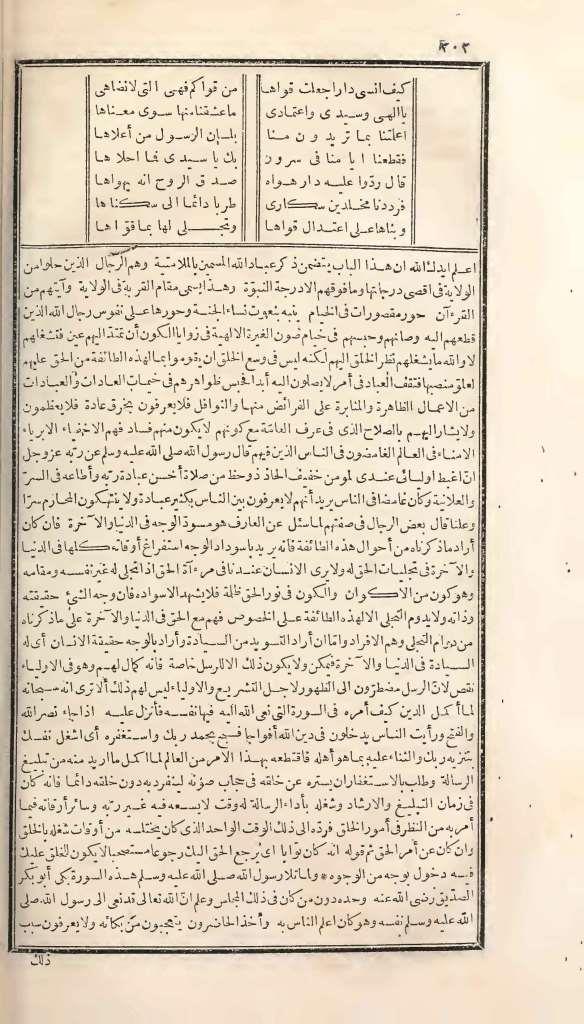 ٣٠٢
كيف انسى دارا جعلت قواها من قواكم فهى التى لا تضاهى
يا الهى وسيدى واعتمادى ما عشقنا منها سوى معناها
اعلمتنا بما تريدون منا بلسان الرسول من أعلاها
فقطعنا ايامنا فى سرور بك ياسيدى فما احلاها
قال ردّوا عليه دار هواه صدق الروح انه يهواها
فرددنا مخلدين سكارى طربا دائما الى سكناها
وبناها على اعتدال قواها وتجلى لها بما قواها
اعلم ايدك الله ان هذا الباب يتضمن ذكر عباد الله المسمين بالملامتية وهم الرجال الذين حلوا من
الولاية فى اقصى درجاتها وما فوقهم الا درجة النبوّة وهذا يسمى مقام القربة فى الولاية وآيتهم من
القرءآن حور مقصورات فى الخيام ينبه بنعوت نساء الجنة وحورها على نفوس رجال الله الذين
قطعهم اليه وصانهم وحبسهم فى خيام صون الغيرة الالهية فى زوايا الكون أن تمتدّ اليهم عين فتشغلهم
لا والله ما يشغلهم نظر الخلق اليهم لكنه ليس فى وسع الخلق ان يقوموا بما لهذه الطائفة من الحق عليهم
لعلو منصبها فتقف العباد فى أمر لا يصلون اليه أبدا فحبس ظواهرهم فى خيمات العادات والعبادات
من الاعمال الظاهرة والمثابرة على الفرائض منها والنوافل فلا يعرفون بخرق عادة فلا يعظمون
ولا يشار اليهم بالصلاح الذى فى عرف العامّة مع كونهم لا يكون منهم فساد فهم الاخفياء الابرياء
الامناء فى العالم الغامضون فى الناس الذين فيهم قال رسول الله صلى الله عليه وسلم عن ربه عز وجل
انّ اغبط اوليائى عندى لمؤمن خفيف الحاذ ذو حظ من صلاة أحسن عبادة ربه وأطاعه فى السرّ
والعلانية وكان غامضا فى الناس يريد أنهم لا يعرفون بين الناس بكثير عبادة ولا ينتهكون المحارم سرّا
وعلنا قال بعض الرجال فى صفتهم لما سئل عن العارف هو مسودّ الوجه فى الدنيا والآخرة فان كان
أراد ما ذكرناه من أحوال هذه الطائفة فانه يريد باسوداد الوجه استفراغ أوقاته كلها فى الدنيا
والآخرة فى تجليات الحق له ولا يرى الانسان عندنا فى مرءآة الحق اذا تجلى له غير نفسه ومقامه
وهو كون من الاكوان والكون فى نور الحق ظلمة فلا يشهد الا سواده فان وجه الشئ حقيقته
وذاته ولا يدوم التجلى الا لهذه الطائفة على الخصوص فهم مع الحق فى الدنيا والآخرة على ما ذكرناه
من دوام التجلى وهم الافراد واما ان أراد التسويد من السيادة وأراد بالوجه حقيقة الانسان أى له
السيادة فى الدنيا والآخرة فيمكن ولا يكون ذلك الا للرسل خاصة فانه كمال لهم وهو فى الاولياء
نقص لانّ الرسل مضطرّون الى الظهور لاجل التشريع والاولياء ليس لهم ذلك ألا ترى انه سبحانه
لما أكمل الدين كيف أمره فى السورة التى نعى الله اليه فيها نفسه فأنزل عليه اذا جاء نصر الله
والفتح ورأيت الناس يدخلون فى دين الله أفواجا فسبح بحمد ربك واستغفره أى اشغل نفسك
بتنزيه ربك والثناء عليه بما هو أهله فاقتطعه بهذا الامر من العالم لما اكمل ما اريد منه من تبليغ
الرسالة وطلب بالاستغفار ان يستره عن خلقه فى حجاب صونه لينفرد به دون خلقه دائما فانه كان
فى زمان التبليغ والارشاد وشغله بأداء الرسالة له وقت لا يسعه فيه غير ربه وسائر أوقاته فيما
أمر به من النظر فى أمور الخلق فردّه الى ذلك الوقت الواحد الذى كان يختلسه من أوقات شغله بالخلق
وان كان عن أمر الحق ثم قوله انه كان توّابا اى يرجع الحق اليك رجوعا مستصحبا لا يكون للخلق عليك
فيه دخول بوجه من الوجوه * ولما تلا رسول الله صلى الله عليه وسلم هذه السورة بكى أبو بكر
الصدّيق رضى الله عنه وحده دون من كان فى ذلك المجلس وعلم انّ الله تعالى قد نعى الى رسول الله صلى
الله عليه وسلم نفسه وهو كان اعلم الناس به وأخذ الحاضرون يتعجبون من بكائه ولا يعرفون سبب
ذلك